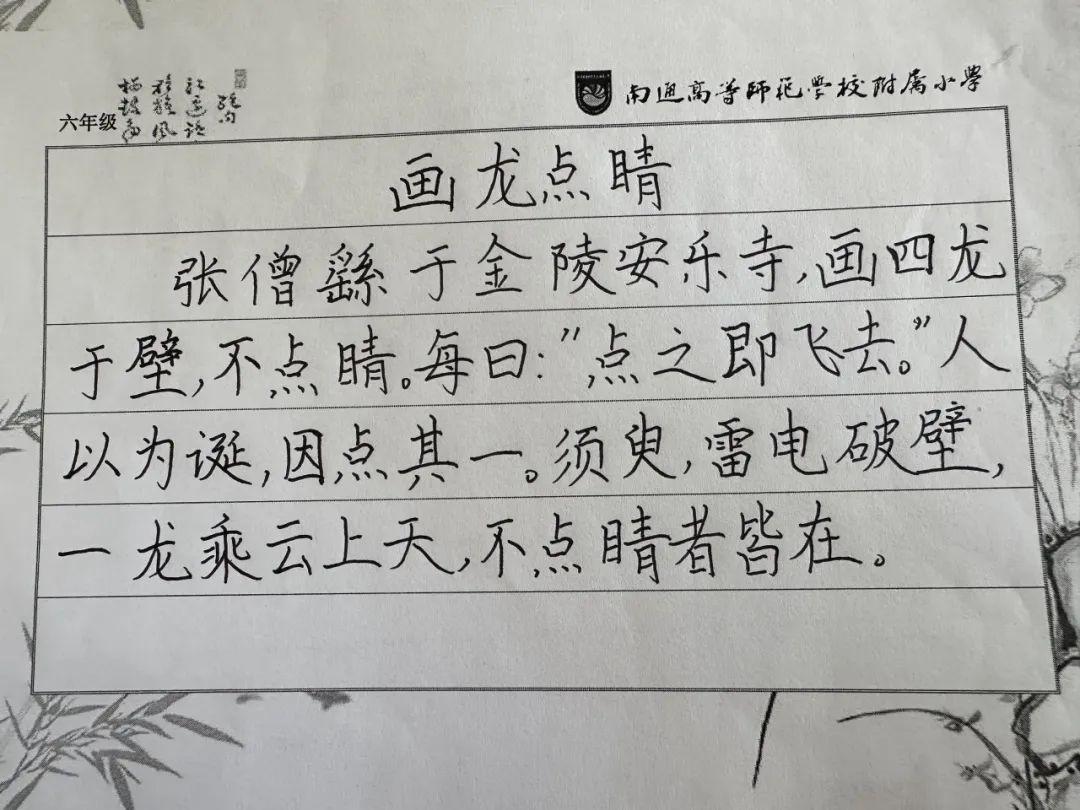 六年级
南通高等师范学校附属小学
画龙点睛
张僧繇于金陵安乐寺,画四龙
于壁,不点睛。每曰:"点之即飞去。"人
以为诞,因点其一。须臾,雷电破壁,
一龙乘云上天,不点睛者皆在。